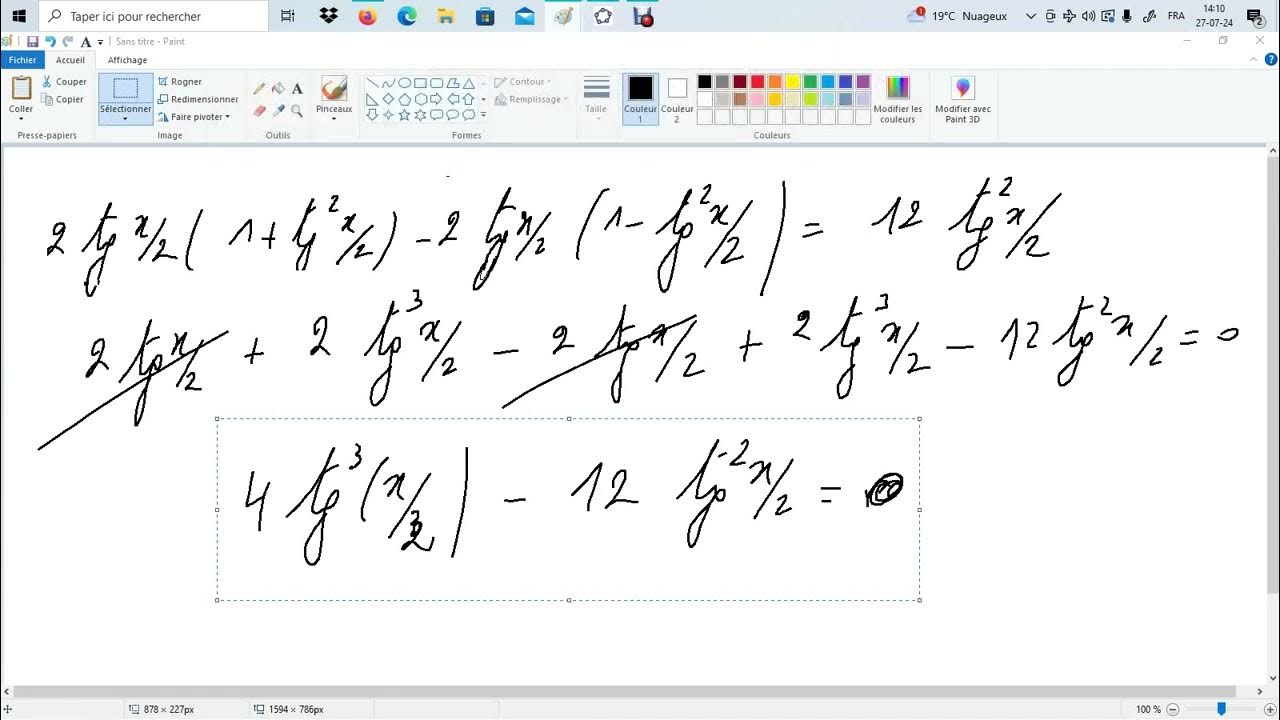 Taper ici pour rechercher
19°C Nuageux
FRA
14:10
27-07-24
2
Sans titre - Paint
Fichier
Accueil
Affichage
Coller
Couper
Copier
Presse-papiers
Sélectionner
Rogner
Redimensionner
Faire pivoter
Image
A
Outils
Pinceaux
Contour
Remplissage
Formes
Taille
Couleur 1
Couleur 2
Modifier les couleurs
Couleurs
Modifier avec Paint 3D
2 tg x/2 ( 1 + tg² x/2 ) - 2 tg x/2 ( 1 - tg² x/2 ) = 12 tg² x/2
2 tg x/2 + 2 tg³ x/2 - 2 tg x/2 + 2 tg³ x/2 - 12 tg² x/2 = 0
4 tg³ (x/2) - 12 tg² x/2 = 0
878 × 227px
1594 × 786px
100 %